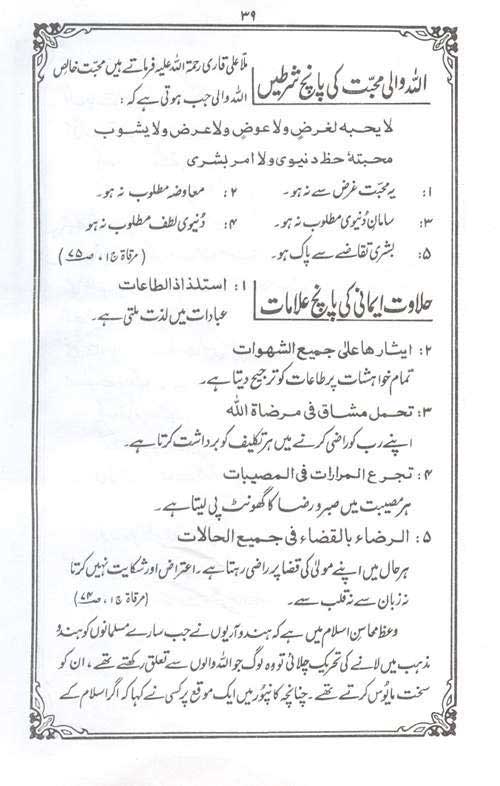 ۳۹
اللہ والی محبت کی پانچ شرطیں
ملا علی قاری رحمۃ اللہ علیہ فرماتے ہیں محبت خالص
اللہ والی جب ہوتی ہے کہ:
لا یحبہ لغرضٍ ولا عوضٍ ولا عرض ولا یشوب
محبتہٗ حظ دنیوی ولا امر بشری
۱: یہ محبت غرض سے نہ ہو۔ ۲: معاوضہ مطلوب نہ ہو۔
۳: سامانِ دُنیوی مطلوب نہ ہو۔ ۴: دُنیوی لطف مطلوب نہ ہو
۵: بشری تقاضے سے پاک ہو۔ (مرقاۃ ج۱، ص۷۵)
حلاوت ایمانی کی پانچ علامات
۱: استلذاذ الطاعات
عبادات میں لذت ملتی ہے۔
۲: ایثارھا علی جمیع الشھوات
تمام خواہشات پر طاعات کو ترجیح دیتا ہے۔
۳: تحمل مشاق فی مرضاۃ اللہ
اپنے رب کو راضی کرنے میں ہر تکلیف کو برداشت کرتا ہے۔
۴: تجرع المرارات فی المصیبات
ہر مصیبت میں صبر و رضا کا گھونٹ پی لیتا ہے۔
۵: الرضاء بالقضاء فی جمیع الحالات
ہر حال میں اپنے مولیٰ کی قضا پر راضی رہتا ہے۔ اعتراض اور شکایت نہیں کرتا
نہ زبان سے نہ قلب سے۔ (مرقاۃ ج۱، ص۷۴)
وعظ محاسن اسلام میں ہے کہ ہندو آریوں نے جب سارے مسلمانوں کو ہندو
مذہب میں لانے کی تحریک چلائی تو وہ لوگ جو اللہ والوں سے تعلق رکھتے تھے، ان کو
سخت مایوس کرتے تھے۔ چنانچہ کانپور میں ایک موقع پر کسی نے کہا کہ اگر اسلام کے